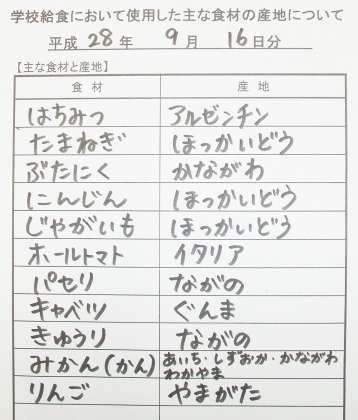 学校給食において使用した主な食材の産地について
平成 28 年 9 月 16 日分
【主な食材と産地】
食材 産地
はちみつ アルゼンチン
たまねぎ ほっかいどう
ぶたにく かながわ
にんじん ほっかいどう
じゃがいも ほっかいどう
ホールトマト イタリア
パセリ ながの
キャベツ ぐんま
きゅうり ながの
みかん(かん) あいち・しずおか・かながわ
わかやま
りんご やまがた